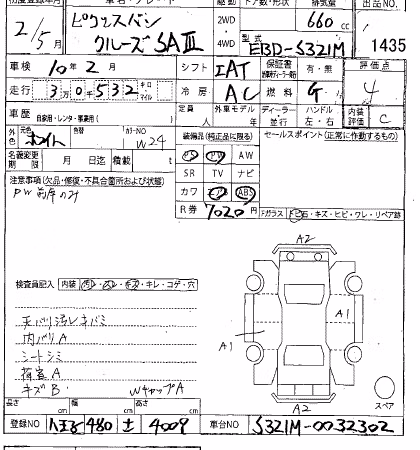 初度登録年月 車名・グレード 駆動 ドア数・形状 排気量 出品NO.
2/5月 ピクシスバン クルーズSAⅢ 2WD・4WD 660cc 1435
型式 EBD-S321M
車検 10年2月 シフト IAT 保証書 有・無 評価点 4
走行 3万0千532 キロ マイル 冷房 AC 燃料 G 内装評価 C
車歴 自家用・レンタ・事業用( ) 定員 人 外車モデル 年 ディーラー・並行 ハンドル 左・右
外色 元色 ホワイト 色替 カラーNO W24
装備品(純正品に限る) セールスポイント(正常に作動するもの)
名義変更期限 月 日迄 積載 t
PS PW AW
SR TV ナビ
カワ エアB ABS
R券 7020円
注意事項(欠品・修復・不具合箇所および状態)
PW 前席のみ
Fガラス トビ石・キズ・ヒビ・ワレ・リペア跡
検査員記入 内装 ・コゲ・穴
天バリ汚レキバミ
内バリA
シートシミ
荷室A
キズB WキャップA
A2
A1
A1
A2
スペア
長さ cm 幅 cm 高さ cm
登録NO 480 4009 車台NO S321M-0032302